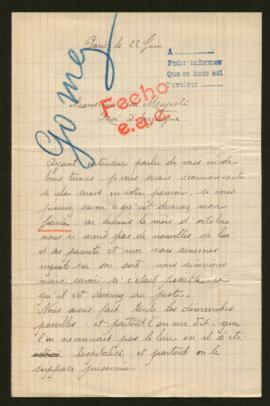 Paris le 22 Juin
A
Pedir informes
Que se hace así
Devolver
Gomez
Fecho
e.a.c.
Sa Majesté
Roi d'Espagne
Ayant entendu parler de vous en de
bons termes, je vous serais reconnaissante
si cela serait en votre pouvoir, si vous
pourriez savoir ce qu'est devenu mon
fiancé, car depuis le mois d'octobre
nous n'avons pas de nouvelles de lui
et ses parents et moi nous sommes
inquiets sur son sort nous aimerions
mieux savoir si c'était possible ce
qu'il est devenu au juste.
Nous avons fait toute les démarches
possibles et partout l'on me dit, que
l'on ne connaît pas le lieu où il a été
hospitalisé et partout on le
suppose prisonnier.